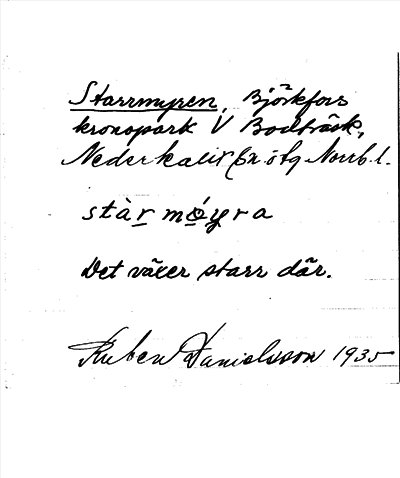 Starrmyren, Björkfors
kronopark V Bodträsk,
Nederkalix sn. ö tg Norrb. l.
stàr móyra
Det växer starr där.
Ruben Danielsson 1935